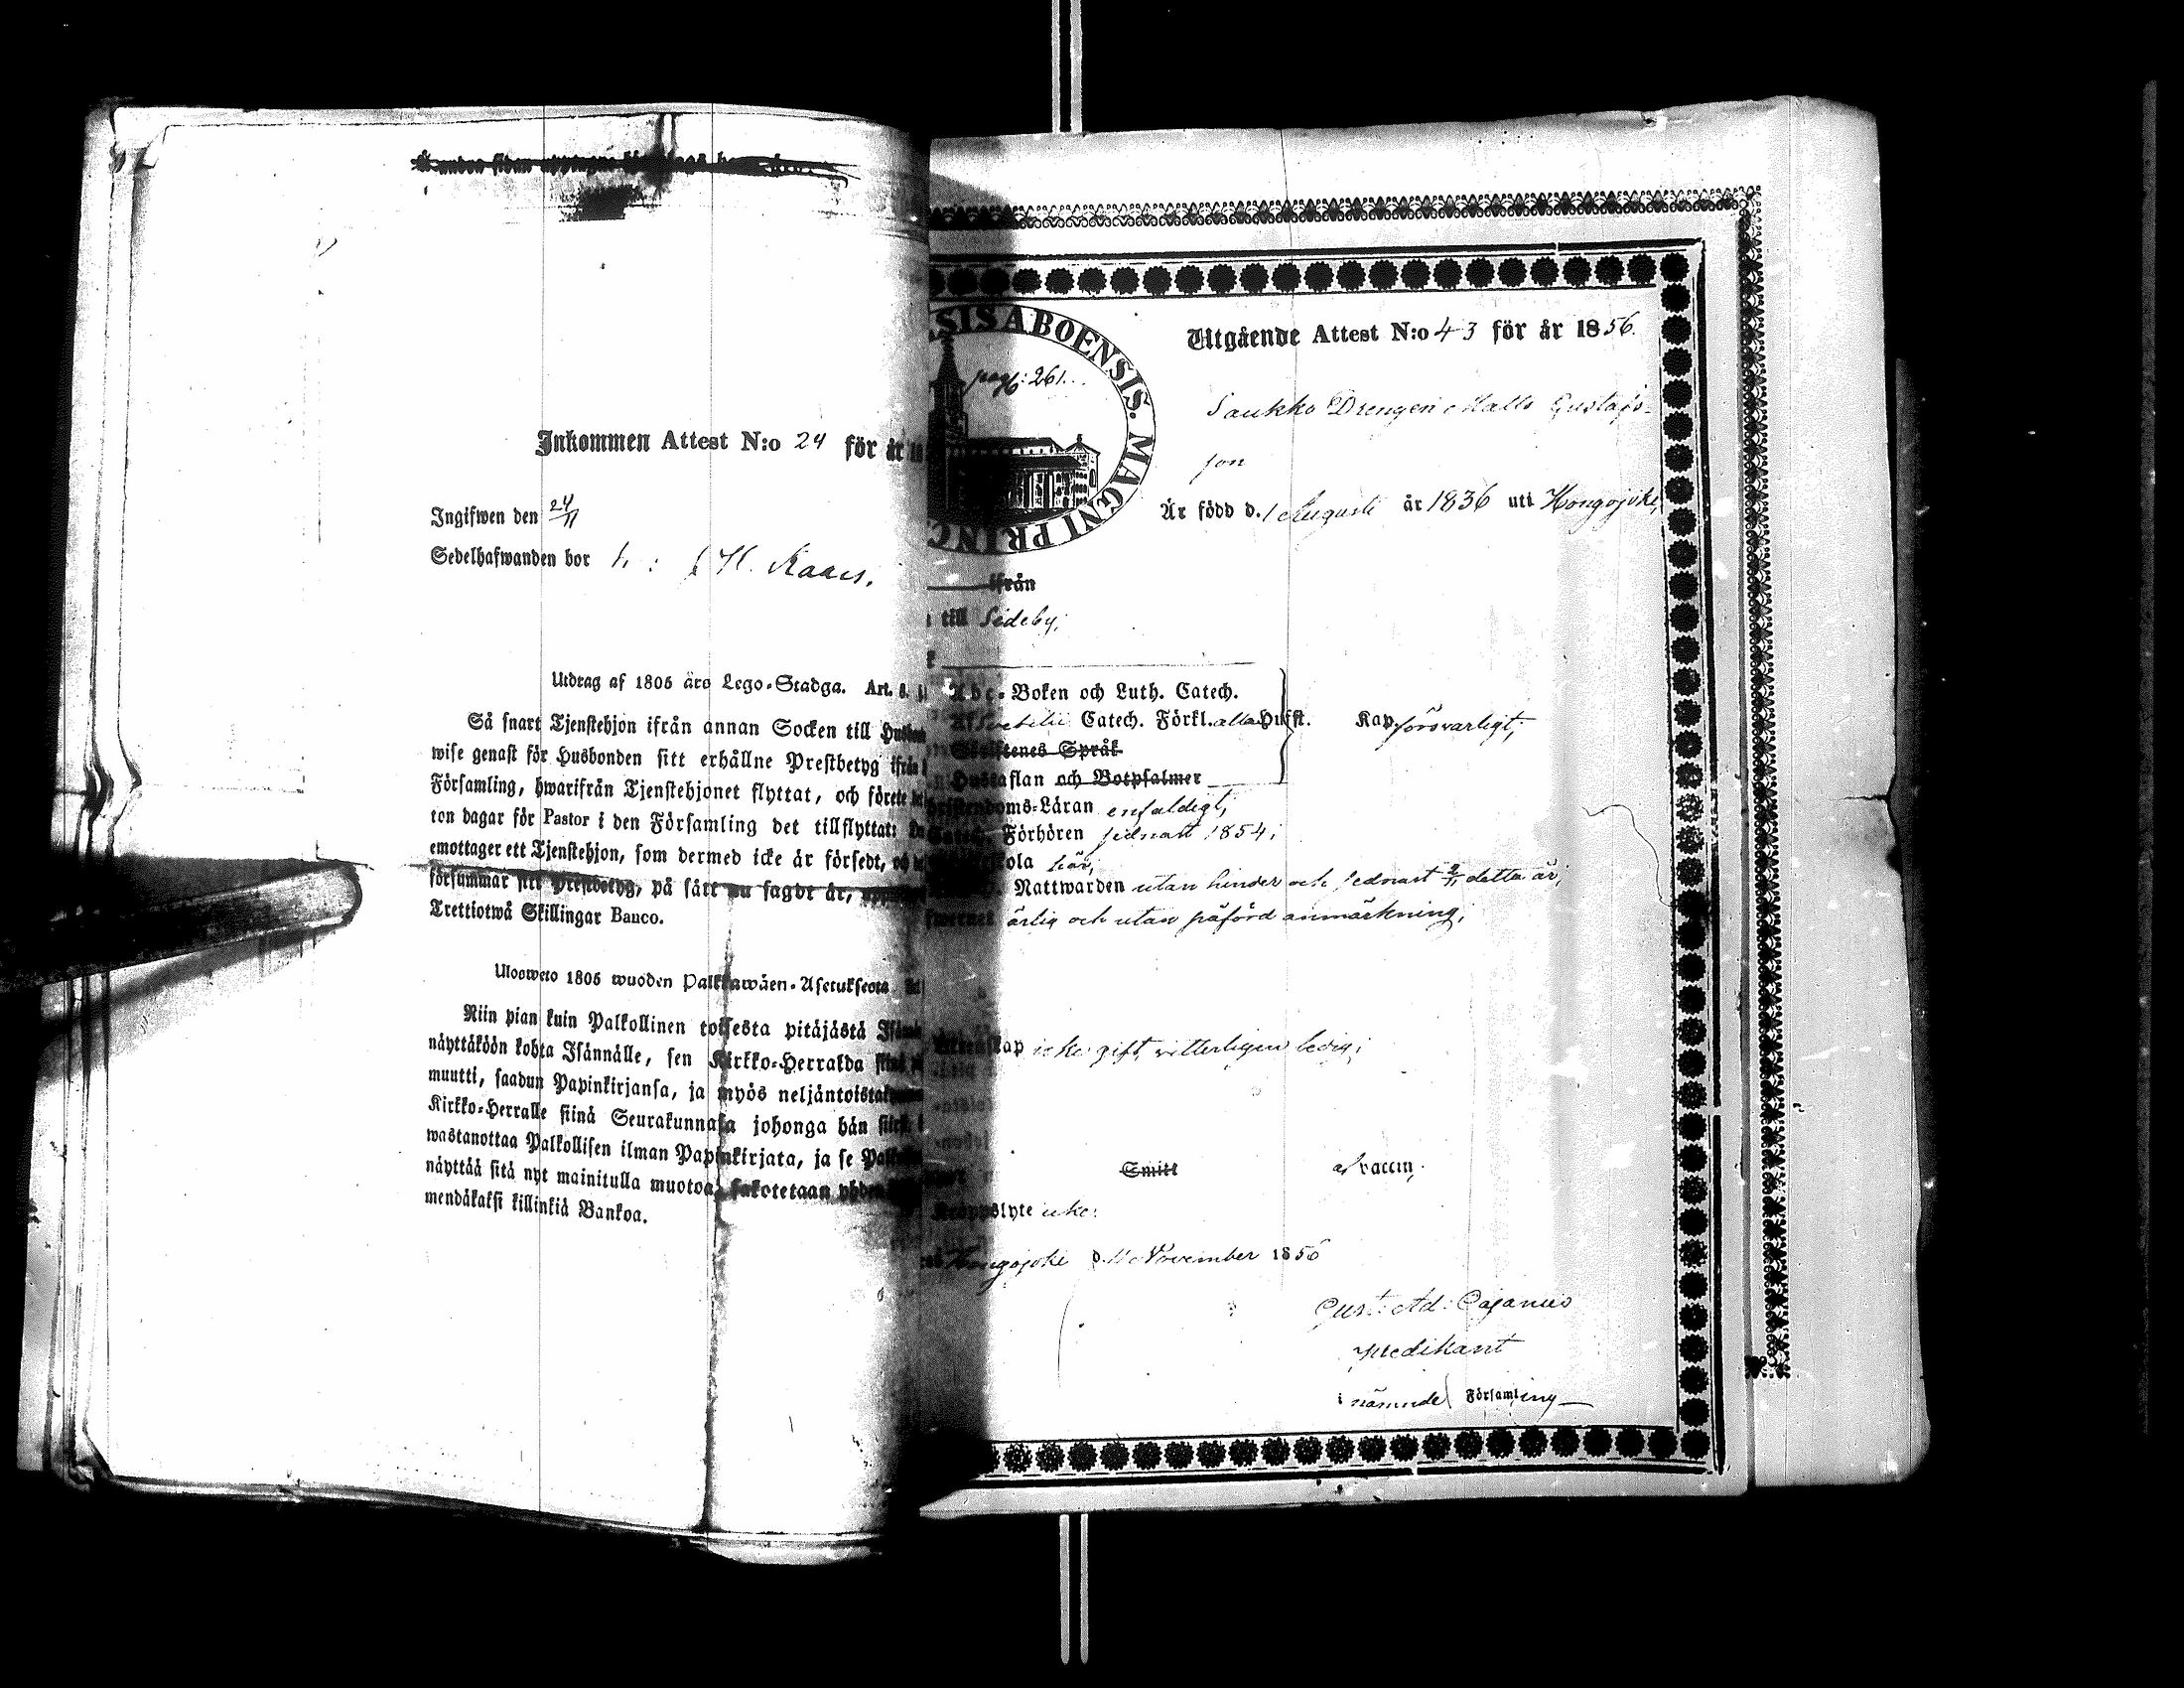 Å andra sidan
Inkommen Attest N:o 24 för år 18
Ingifwen den 24/11
Sedelhafwanden bor
Utdrag af 1805 års Lego-Stadga. Art. 8.
Så snart Tjenstehjon ifrån annan Socken till
wise genast för Husbonden sitt erhållne Prestbetyg ifrån
Församling, hwarifrån Tjenstehjonet flyttat, och förete
ton dagar för Pastor i den Församling det tillflyttat:
emottager ett Tjenstehjon, som dermed icke är försedt,
försummar sitt Prestbetyg, på sätt nu sagdt är,
Trettiotwå Skillingar Banco.
Ulosweto 1805 wuoden Palkkawäen-Asetuksesta
Niin pian kuin Palkollinen toisesta pitäjästä
näyttäköön kohta Isännälle, sen Kirkko-Herralda
muutti, saadun Papinkirjansa, ja myös
Kirkko-Herralle siinä Seurakunnasa johonga hän
wastanottaa Palkollisen ilman Papinkirjata, ja se
näyttää sitä nyt mainitulla muotoa, sakotetaan yhden
mendäkaksi killinkiä Bankoa.
SIS ABOENSIS. MAGNI PRINC
pag: 261.
Utgående Attest N:o 43 för år 1856.
Saukko Drengen Malls Gustafs-
son
Är född d. 1 Augusti år 1836 uti Hongojoki,
ifrån
till Sideby;
Abc-Boken och Luth. Catech.
Catech. Förkl. alla Hufst. Kap. försvarligt;
Språk
Hustaflan och Botpsalmer
Christendoms-Läran enfaldigt;
Förhören sednast 1854;
skola här;
Nattwarden utan hinder och sednast 2/11 detta år;
ärlig och utan påförd anmärkning;
icke gift, witterligen ledig;
Smitt af vaccin;
lyte icke;
Hongojoki d. 11 November 1856
Gust: Ad: Cajanus
Predikant
i nämnde Församling